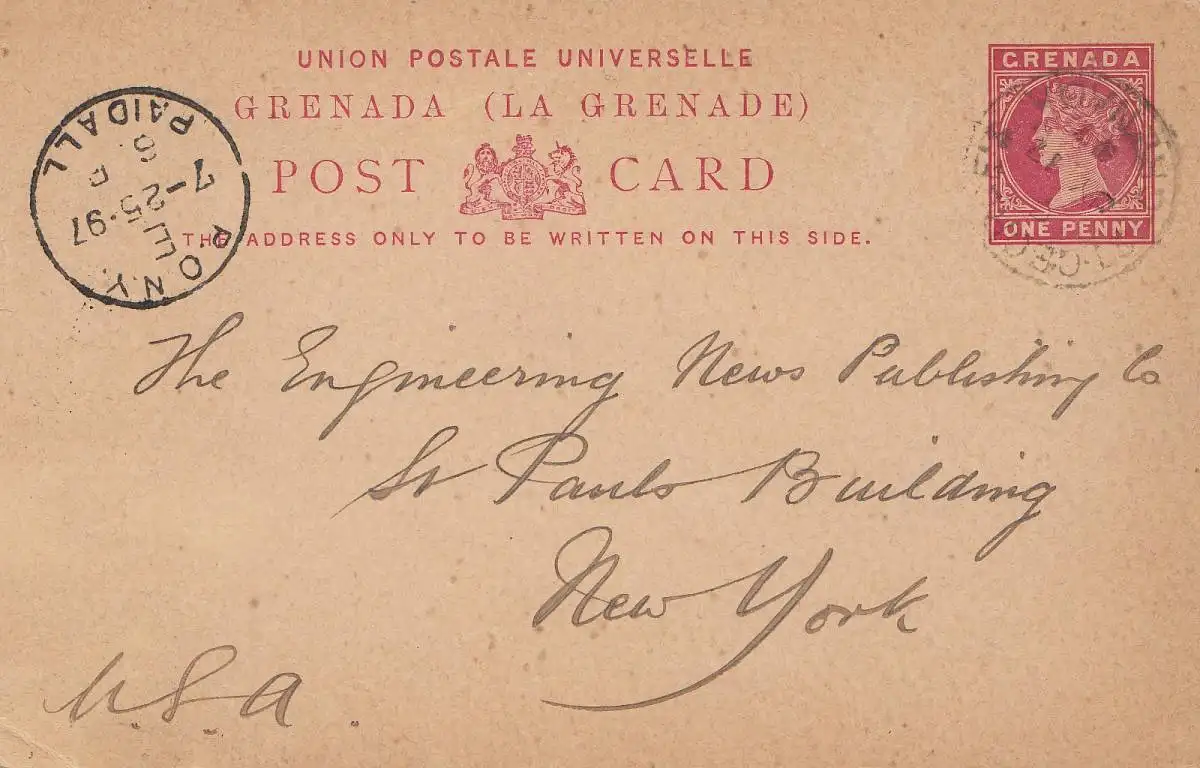 UNION POSTALE UNIVERSELLE
GRENADA (LA GRENADE)
POST CARD
THE ADDRESS ONLY TO BE WRITTEN ON THIS SIDE.
GRENADA
ONE PENNY
PAID ALL
7-25-97
The Engineering News Publishing Co
St Pauls Building
New York
U.S.A.